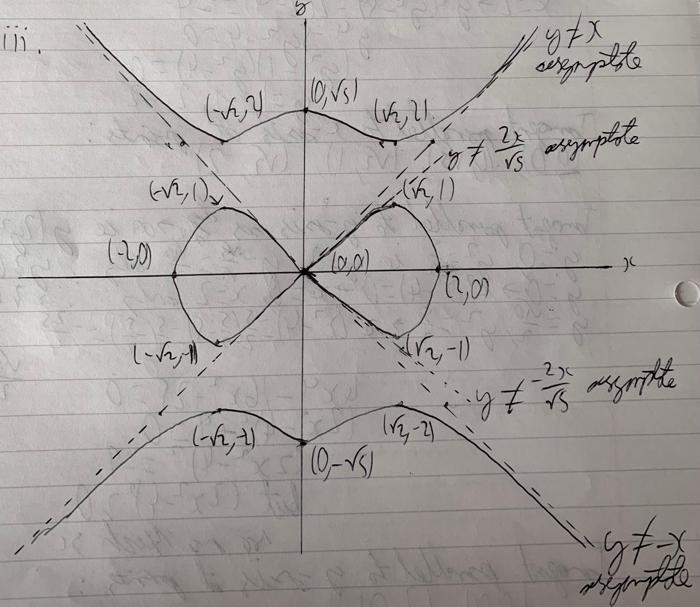 iii.
y
y ≠ x
assymptote
(-√2, 2)
(0, √5)
(√2, 2)
y ≠ 2x/√5 asymptote
(-√2, 1)
(√2, 1)
(-2, 0)
(0,0)
x
(2, 0)
(-√2, -1)
(√2, -1)
y ≠ -2x/√5 asymptote
(-√2, -2)
(√2, -2)
(0, -√5)
y ≠ -x
asymptote